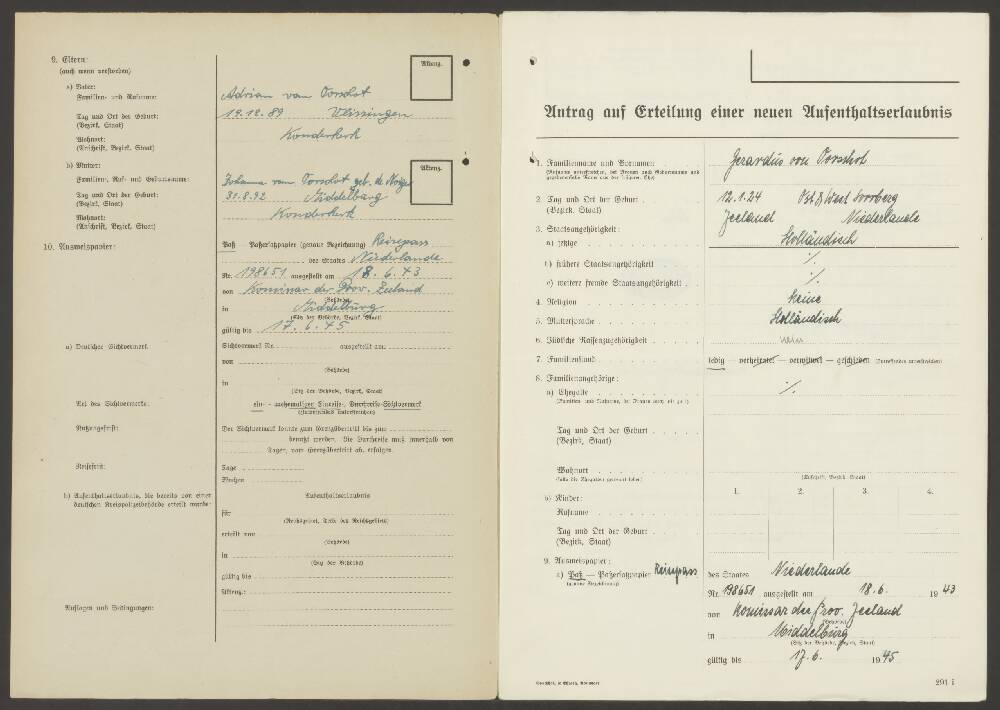 9. Eltern:
(auch wenn verstorben)
a) Vater:
Familien- und Rufname:
Adrian van Oorschot
Tag und Ort der Geburt:
(Bezirk, Staat)
19.12.89 Vlissingen
Wohnort:
(Anschrift, Bezirk, Staat)
Konderkerk
Aktenz.
b) Mutter:
Familien-, Ruf- und Geburtsname:
Johanna van Oorschot geb. de
Tag und Ort der Geburt:
(Bezirk, Staat)
31.8.92 Middelburg
Wohnort:
(Anschrift, Bezirk, Staat)
Konderkerk
Aktenz.
10. Ausweispapier:
Paß — Paßersatzpapier (genaue Bezeichnung) Reisepass
des Staates Niederlande
Nr. 198651 ausgestellt am 18.6.43
von Komissar der Prov. Zeeland
(Behörde)
in Middelburg
(Sitz der Behörde, Bezirk, Staat)
gültig bis 17.6.45
a) Deutscher Sichtvermerk
Sichtvermerk Nr. ausgestellt am
von
(Behörde)
in
(Sitz der Behörde, Bezirk, Staat)
Art des Sichtvermerks:
ein- - mehrmaliger Einreise-, Durchreise-Sichtvermerk
(Zutreffendes unterstreichen)
Nutzungsfrist:
Der Sichtvermerk konnte zum Grenzübertritt bis zum
benutzt werden. Die Durchreise muß innerhalb von
Tagen, vom Grenzübertritt ab, erfolgen.
Reisefrist:
Tage
Wochen
b) Aufenthaltserlaubnis, die bereits von einer
deutschen Kreispolizeibehörde erteilt wurde:
Aufenthaltserlaubnis
für
(Reichsgebiet, Teile des Reichsgebiets)
erteilt von
(Behörde)
in
(Sitz der Behörde)
gültig bis
Aktenz.:
Auflagen und Bedingungen:
Antrag auf Erteilung einer neuen Aufenthaltserlaubnis
1. Familienname und Vornamen:
Gerardus von Oorschot
2. Tag und Ort der Geburt
(Bezirk, Staat)
12.1.24 Ost & West Soorberg
Zeeland Niederlande
3. Staatsangehörigkeit:
a) jetzige
Holländisch
b) frühere Staatsangehörigkeit
·/.
c) weitere fremde Staatsangehörigkeit
·/.
4. Religion
keine
5. Muttersprache
Holländisch
6. Jüdische Rassenzugehörigkeit
nein
7. Familienstand
ledig — verheiratet — verwitwet — geschieden (Zutreffendes unterstreichen)
8. Familienangehörige:
a) Ehegatte
·/.
Tag und Ort der Geburt
(Bezirk, Staat)
Wohnort
(Anschrift, Bezirk, Staat)
b) Kinder:
1. 2. 3. 4.
Rufname
Tag und Ort der Geburt
(Bezirk, Staat)
9. Ausweispapier:
a) Paß — Paßersatzpapier Reisepass
(genaue Bezeichnung)
des Staates Niederlande
Nr. 198651 ausgestellt am 18.6. 1943
von Komissar der Prov. Zeeland
(Behörde)
in Middelburg
(Sitz der Behörde, Bezirk, Staat)
gültig bis 17.6. 1945
291 i